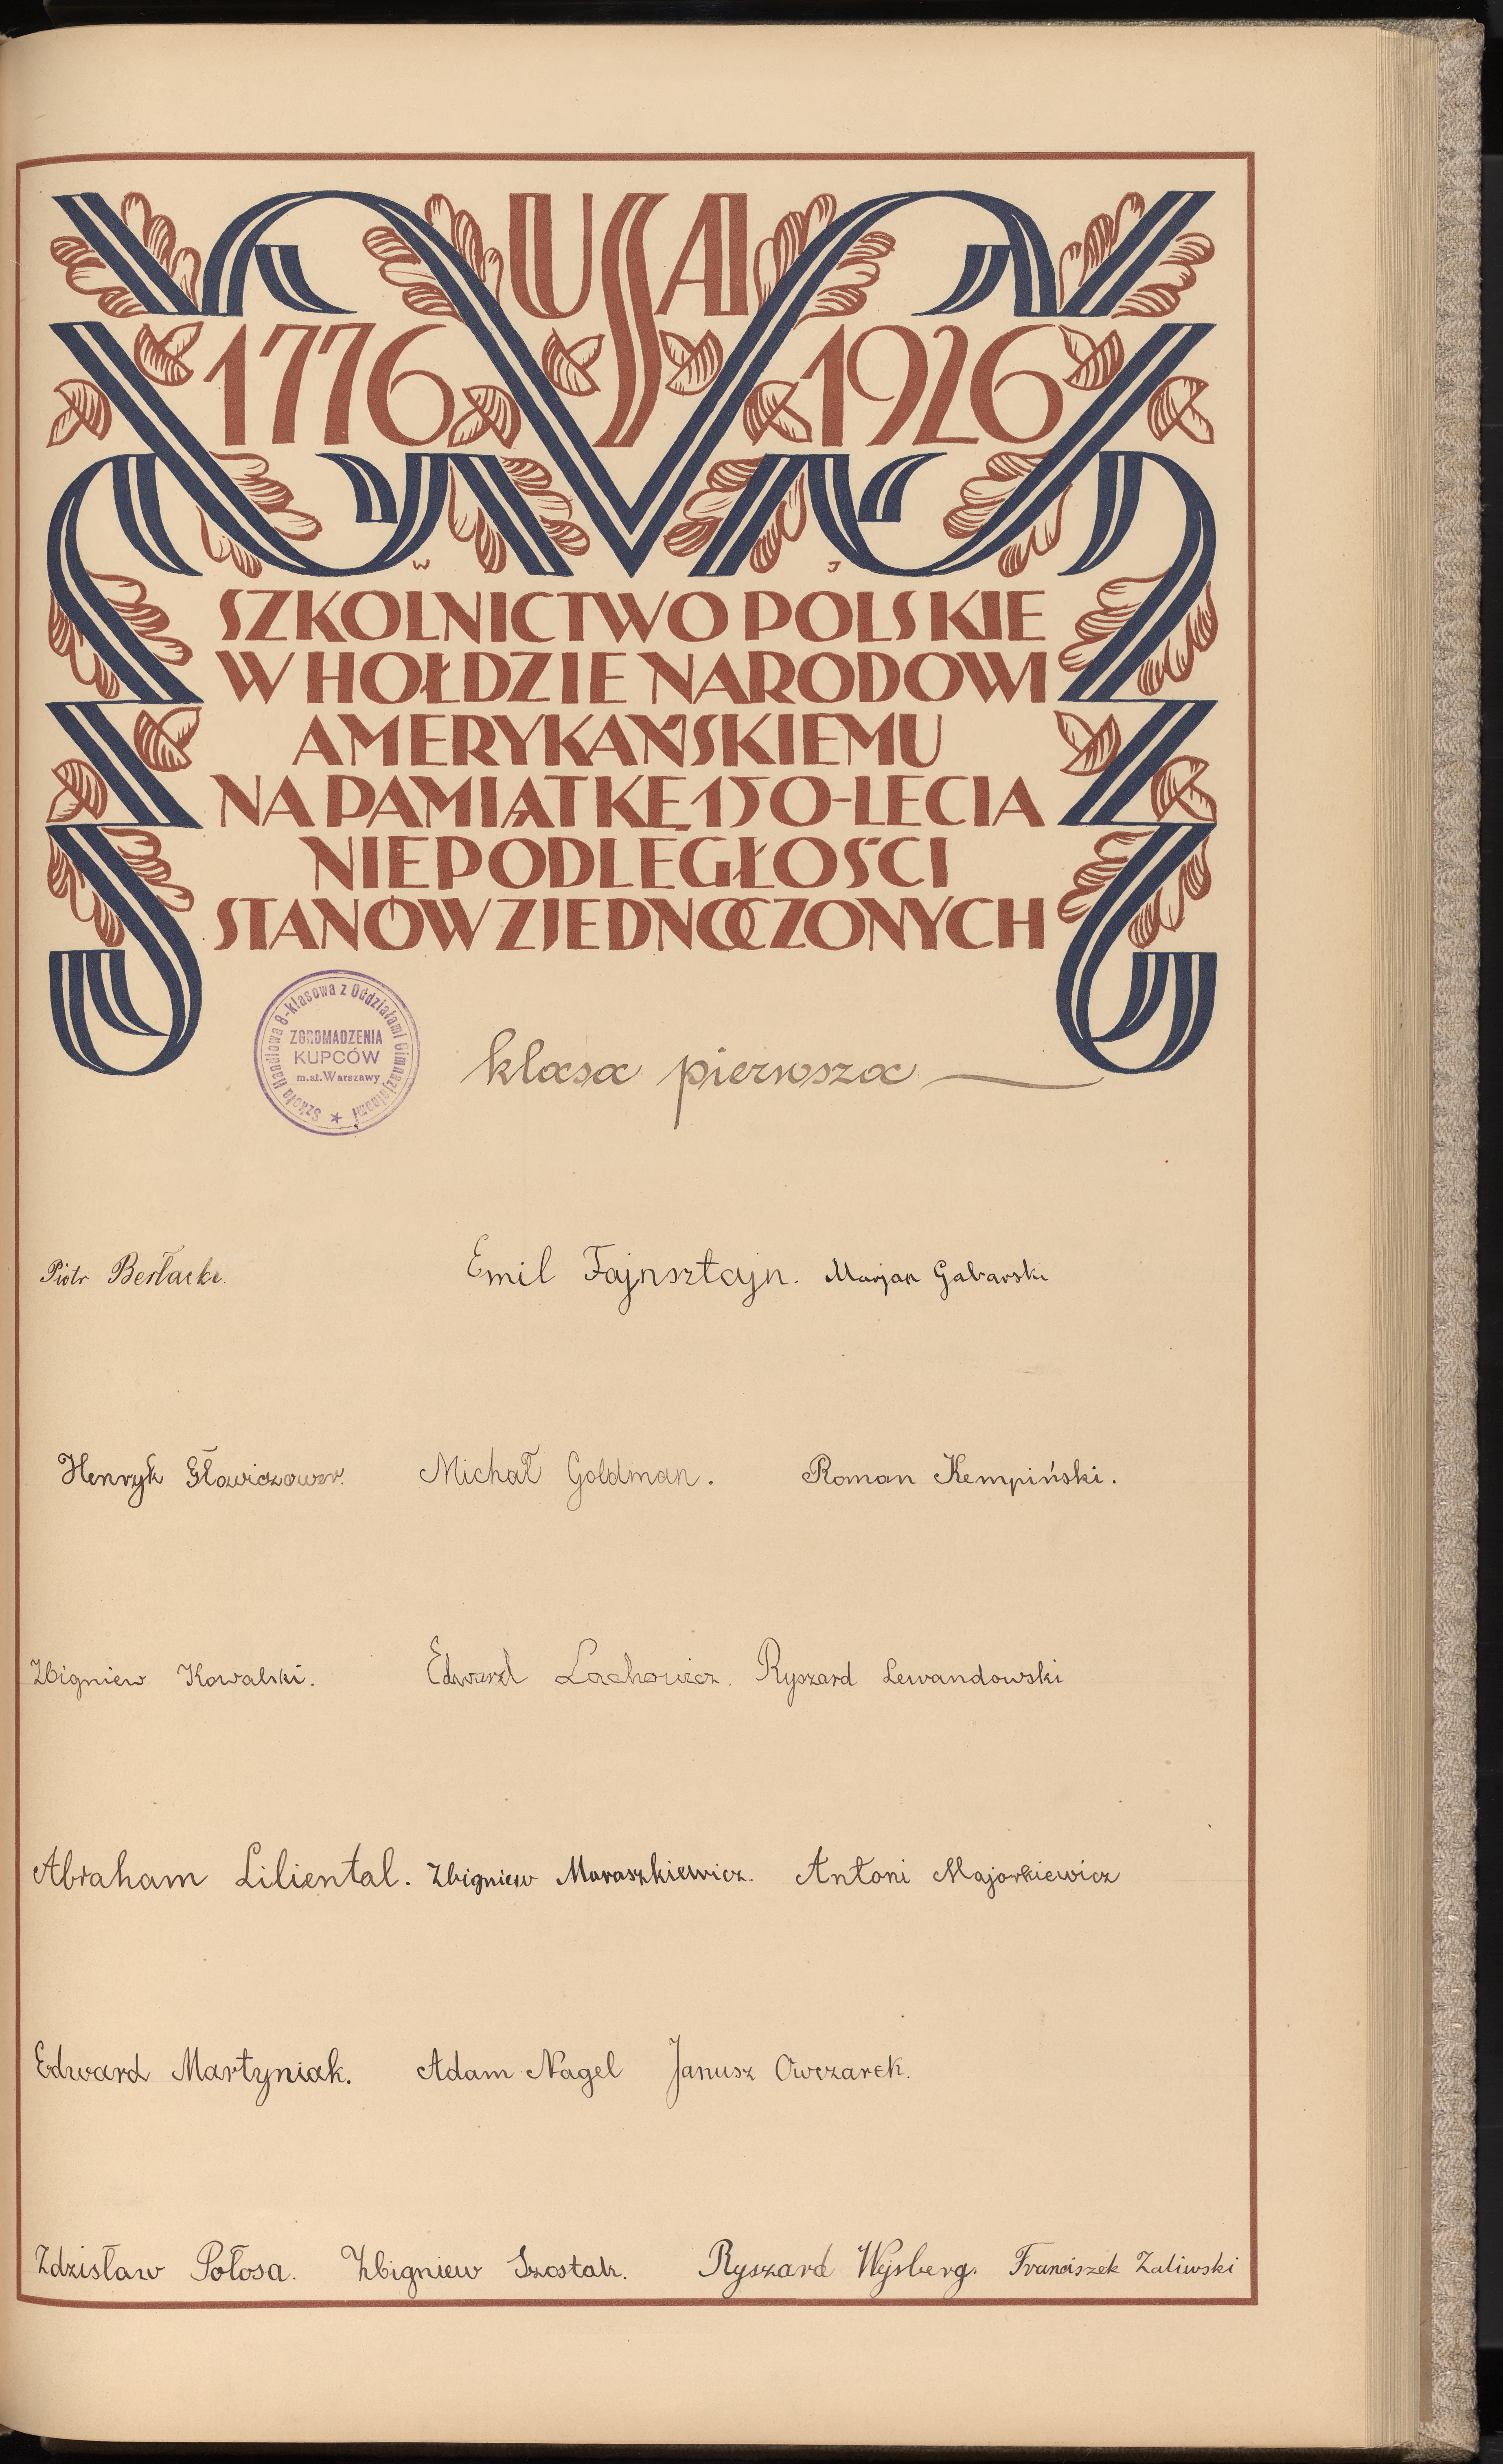 USA
1776 1926
W J
SZKOLNICTWO POLSKIE
W HOŁDZIE NARODOWI
AMERYKAŃSKIEMU
NA PAMIĄTKĘ 150-LECIA
NIEPODLEGŁOŚCI
STANÓW ZJEDNOCZONYCH
Szkoła Handlowa 8-klasowa z Oddziałami Gimnazjalnemi
ZGROMADZENIA
KUPCÓW
m.st. Warszawy
klasa pierwsza
Piotr
Emil Fajnsztajn. Marjan Gabarski
Henryk Michał Goldman. Roman Kempiński.
Zbigniew Kowalski. Edward Lachowicz. Ryszard Lewandowski
Abraham Liliental. Zbigniew Maraszkiewicz. Antoni Majorkiewicz
Edward Martyniak. Adam Nagel Janusz Owczarek.
Zdzisław Połosa. Zbigniew Szostak. Ryszard Wejsberg. Franciszek Zaliwski